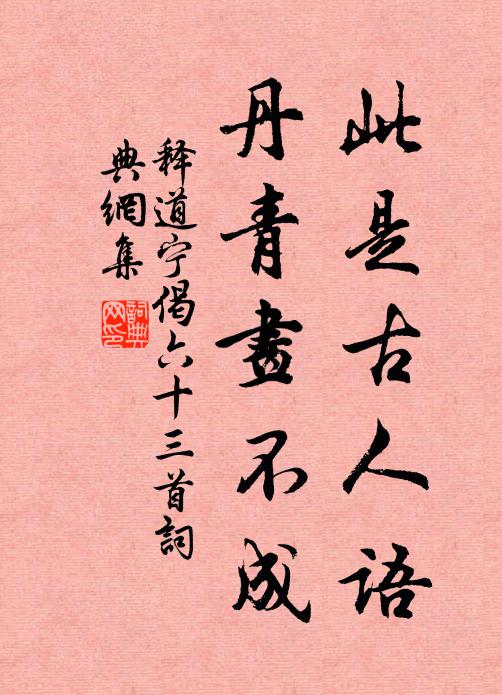 此是古人語
丹青畫不成
释道宁偈六十三首詞
典網集
詞典
网印